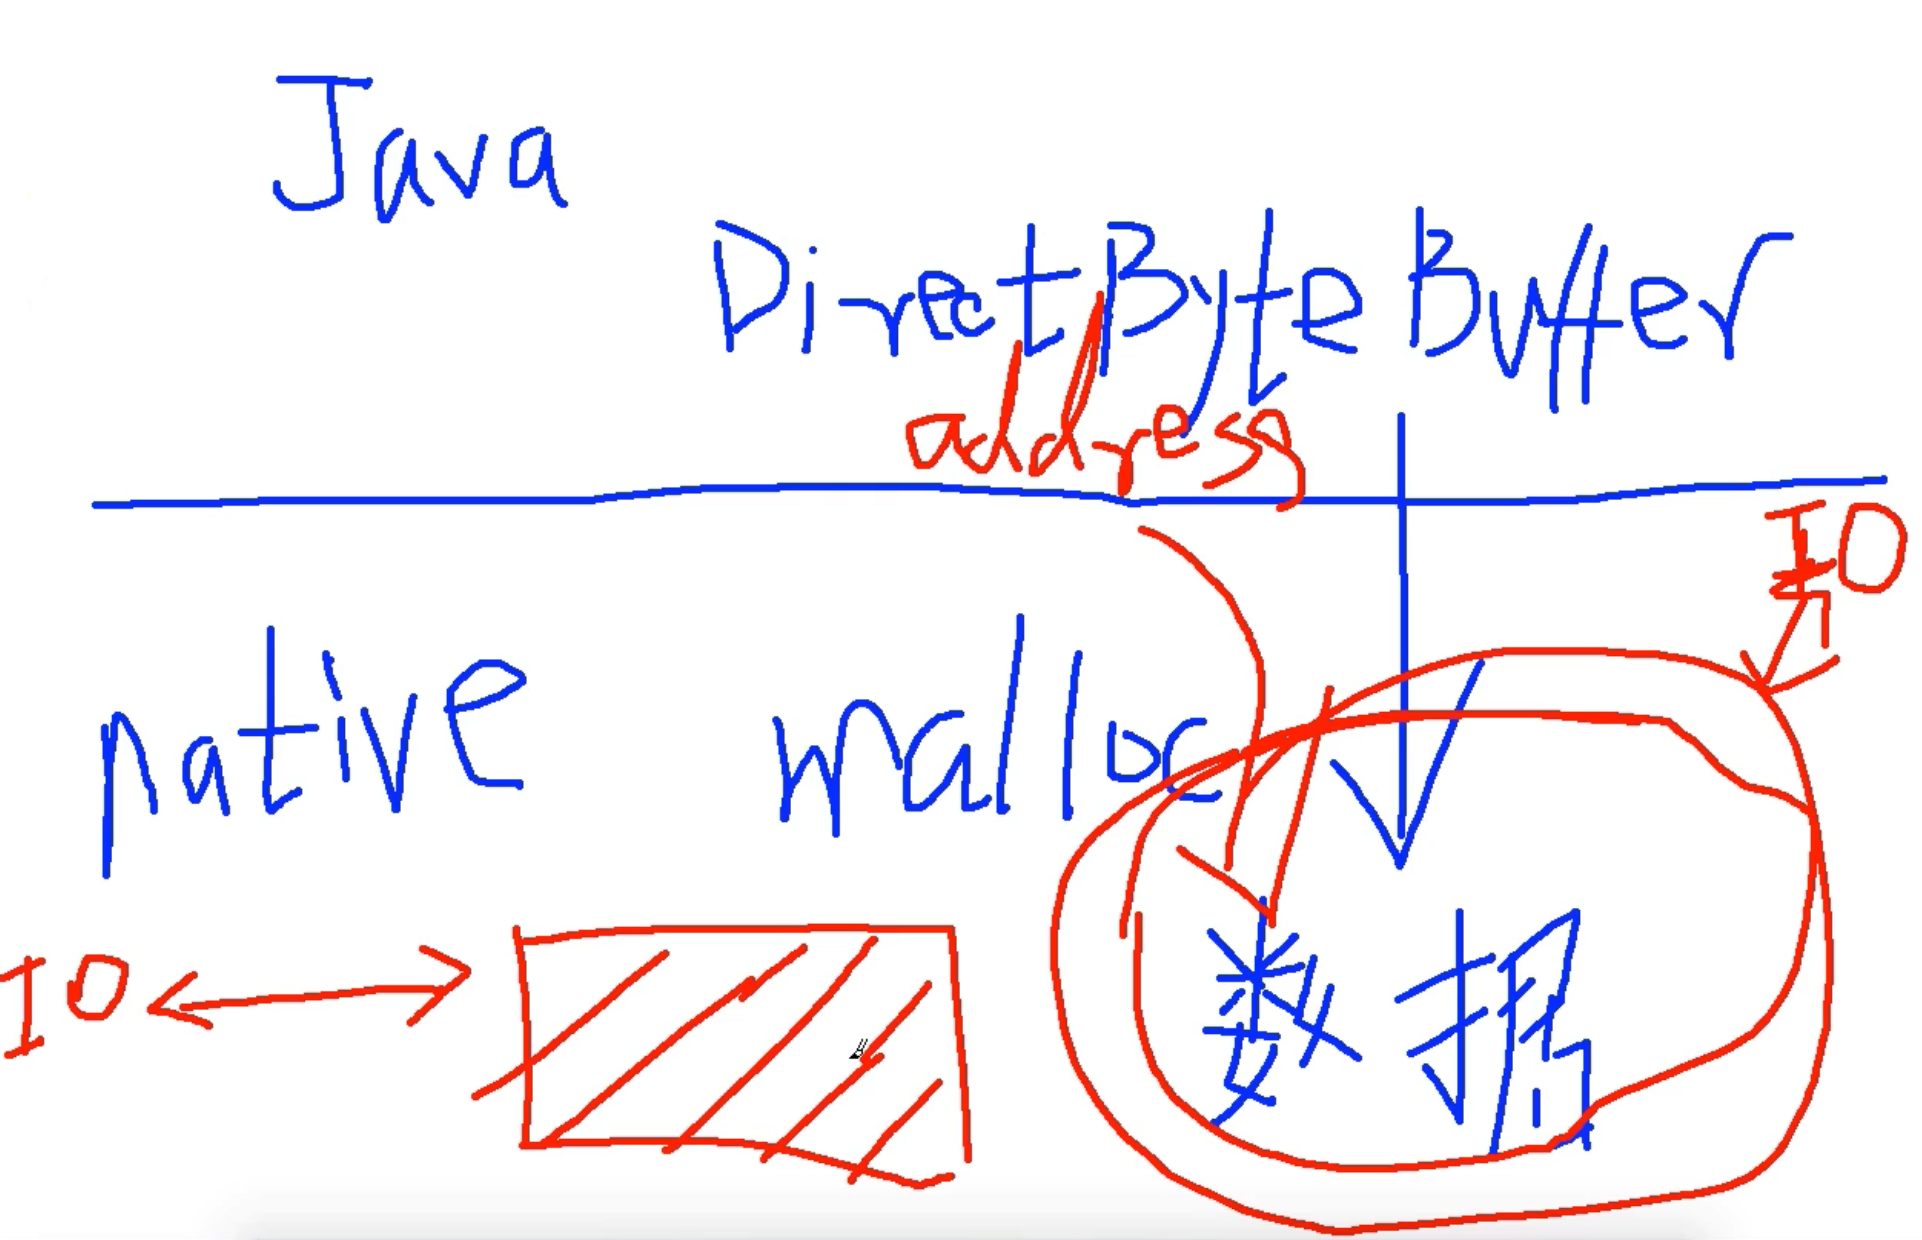 Java
DirectByteBuffer
address
IO
native malloc
IO
数据